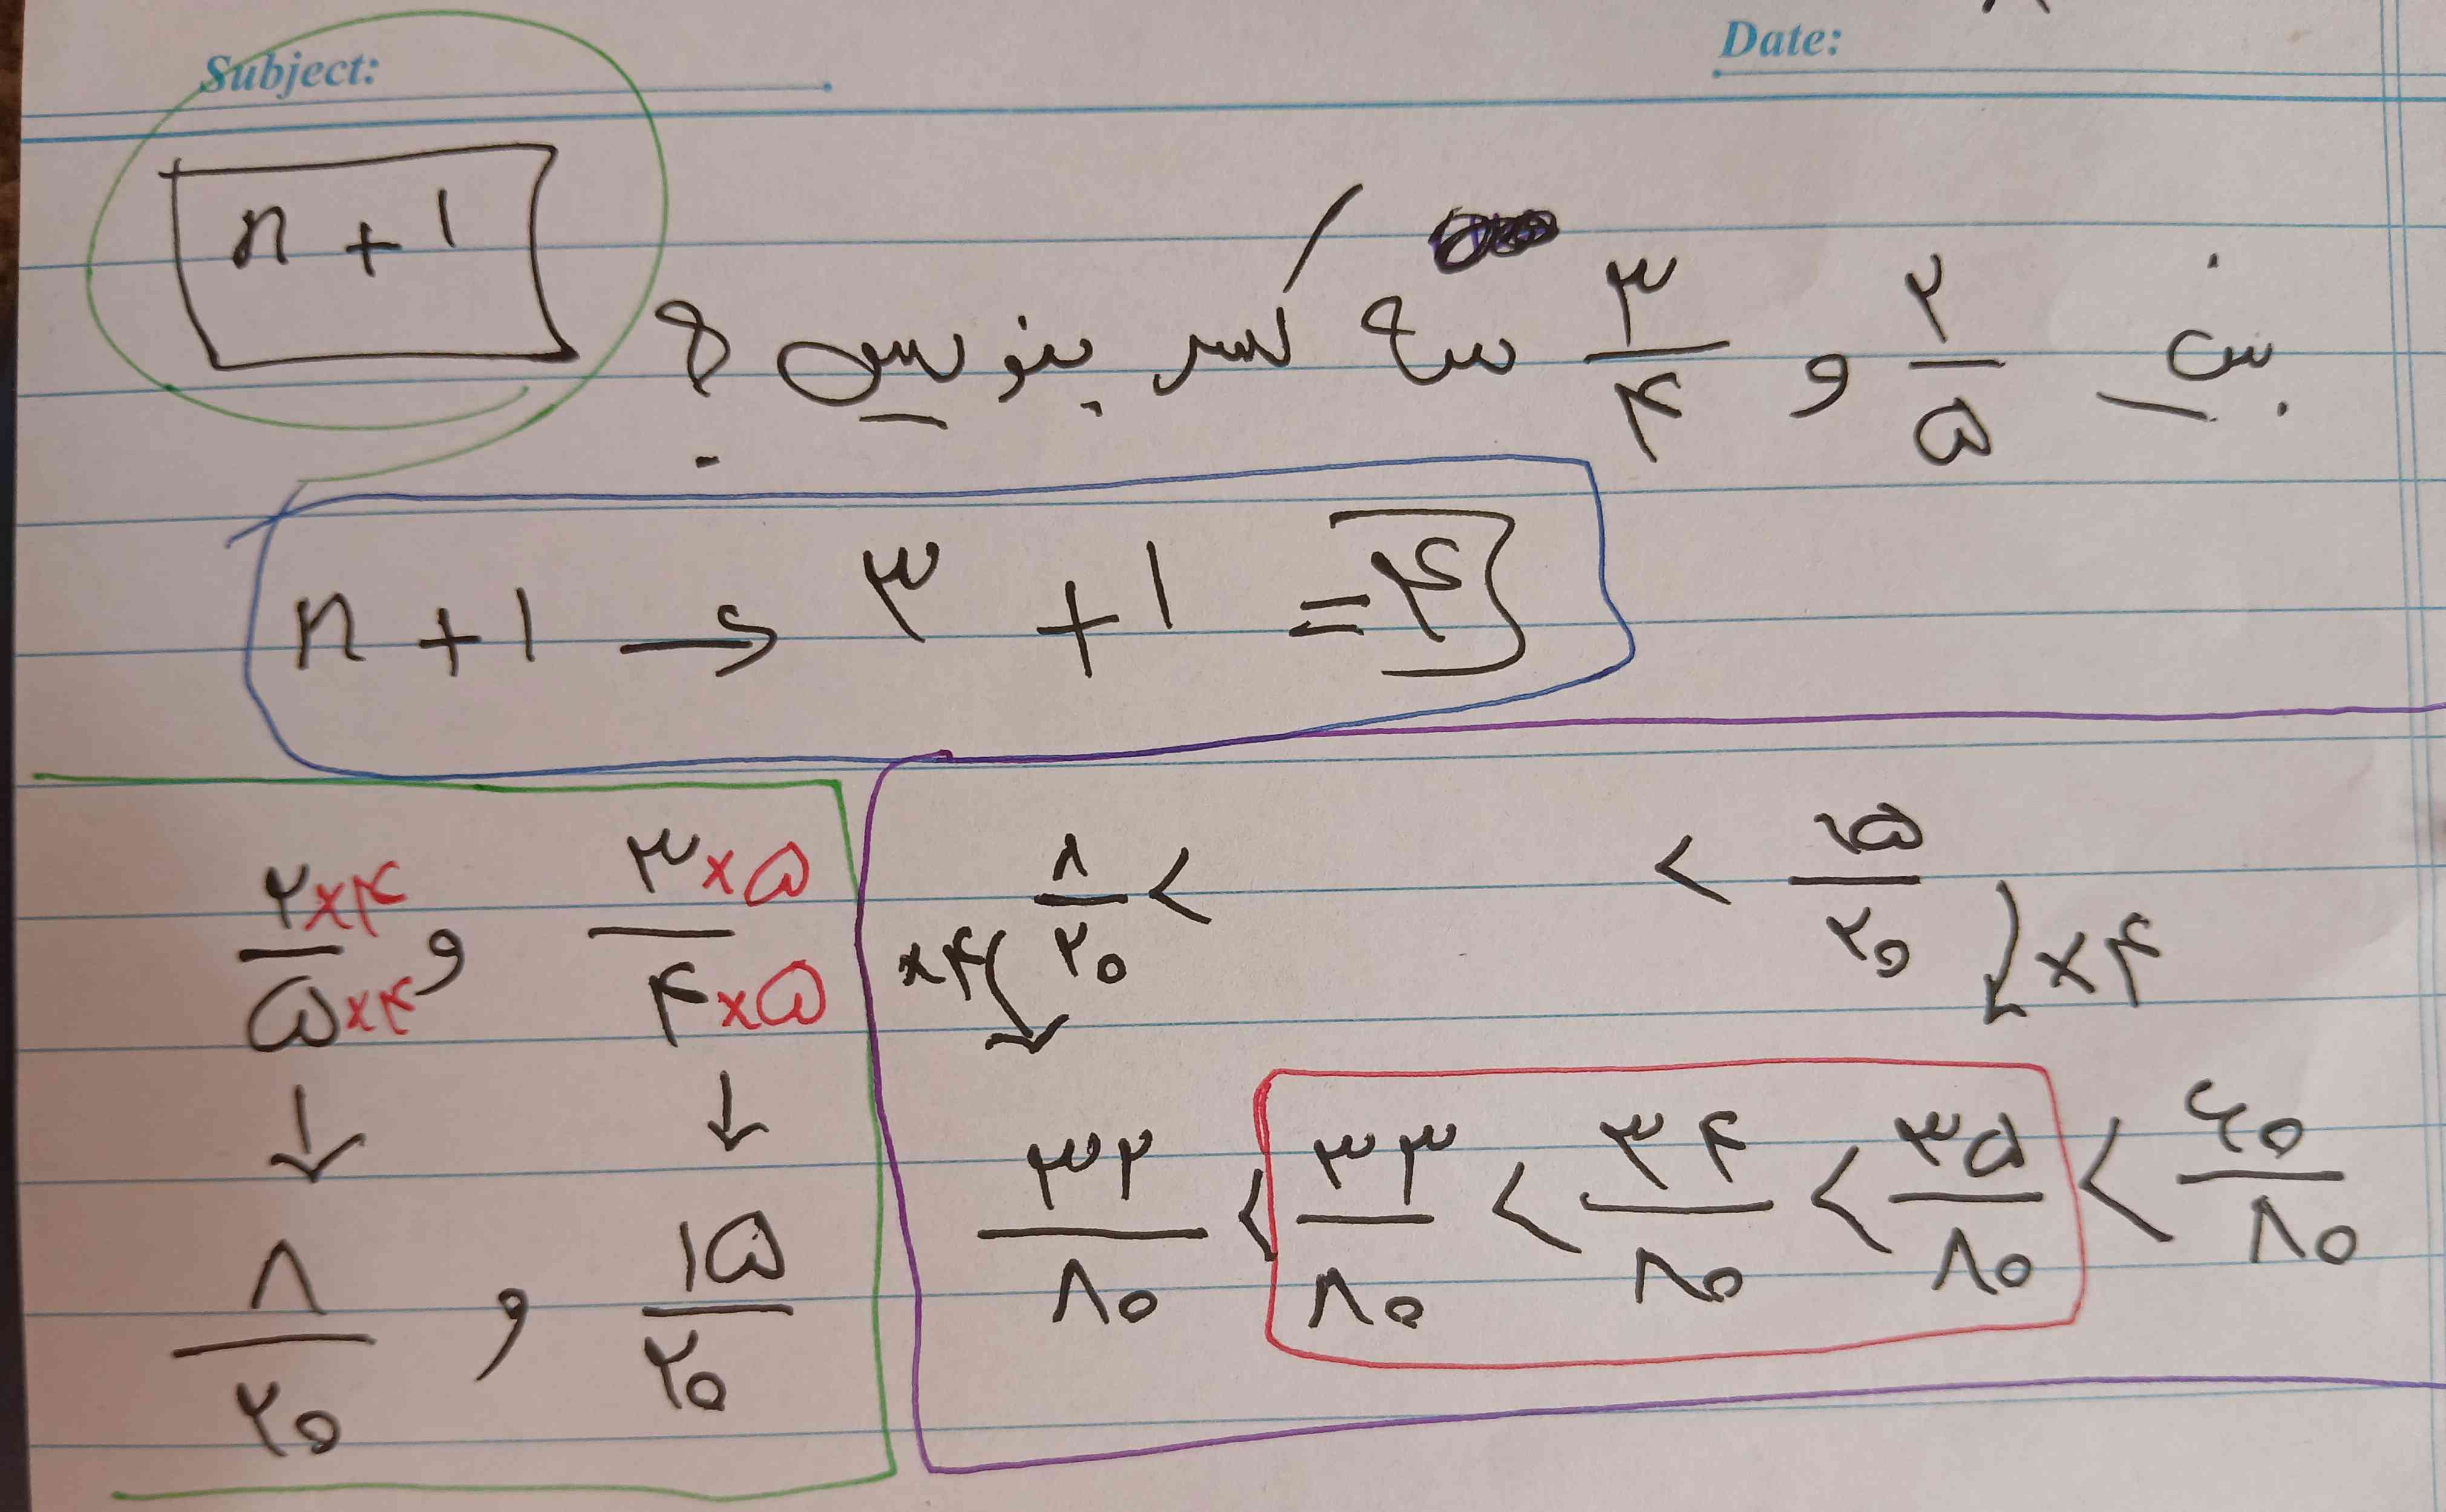 Subject: Date:
n + ۱
بین ۲/۵ و ۳/۴ سه کسر بنویس ؟
n + ۱ → ۳ + ۱ = ۴
۲×۴/۵×۴ و ۳×۵/۴×۵
↓ ↓
۸/۲۰ و ۱۵/۲۰
۸/۲۰ < < ۱۵/۲۰
×۴ ×۴
۳۲/۸۰ < ۳۳/۸۰ < ۳۴/۸۰ < ۳۵/۸۰ < ۶۰/۸۰